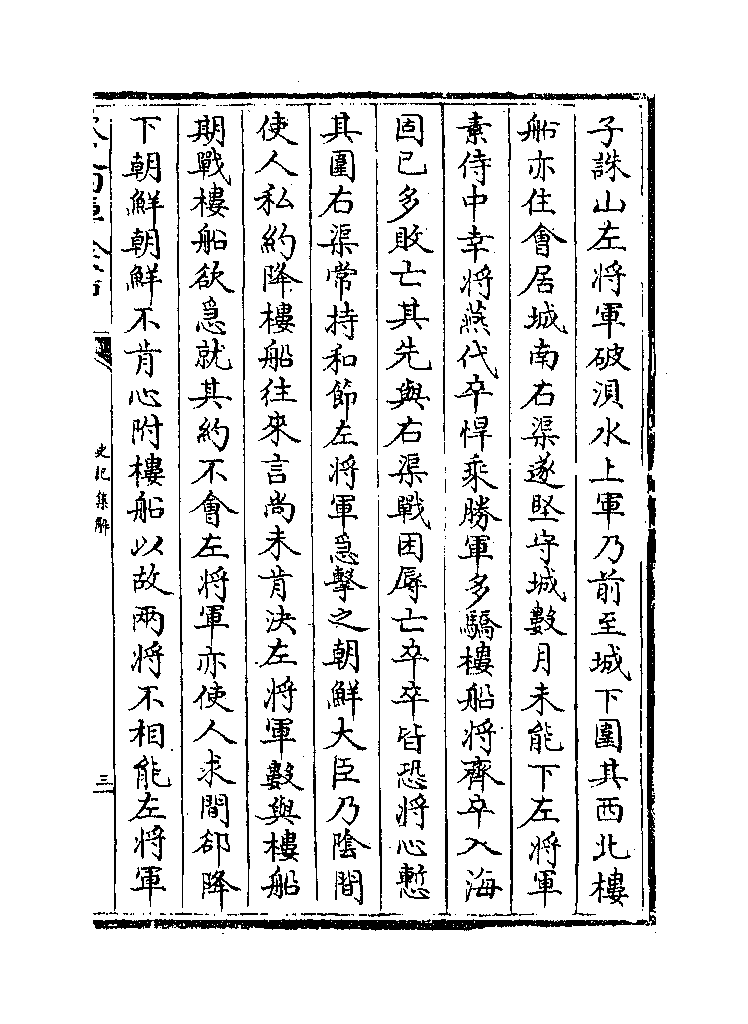 子誅山左將軍破浿水上軍乃前至城下圍其西北樓
船亦住會居城南右渠遂堅守城數月未能下左將軍
素侍中幸將燕代卒悍乘勝軍多驕樓船將齊卒入海
固已多敗亡其先與右渠戰困辱亡卒卒皆恐將心慙
其圍右渠常持和節左將軍急擊之朝鮮大臣乃陰間
使人私約降樓船往來言尚未肯決左將軍數與樓船
期戰樓船欲急就其約不會左將軍亦使人求間郤降
下朝鮮朝鮮不肯心附樓船以故兩將不相能左將軍
史記集解
三